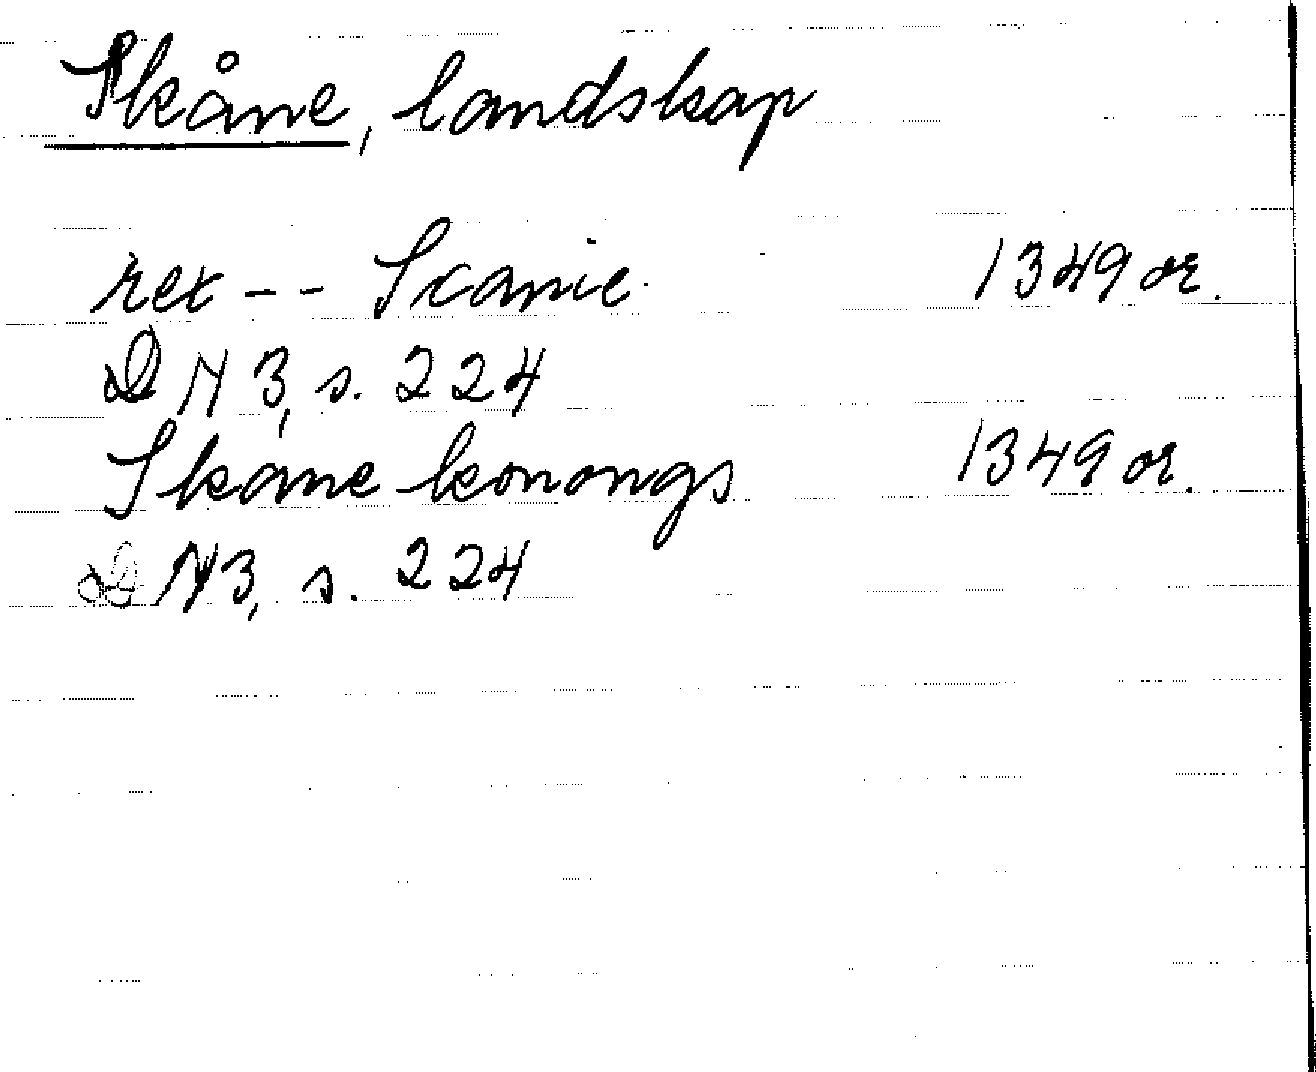 Skåne, landskap
rex -- Scanie. 1349 or.
DN 3, s. 224
Skane konongs 1349 or.
DN 3, s. 224